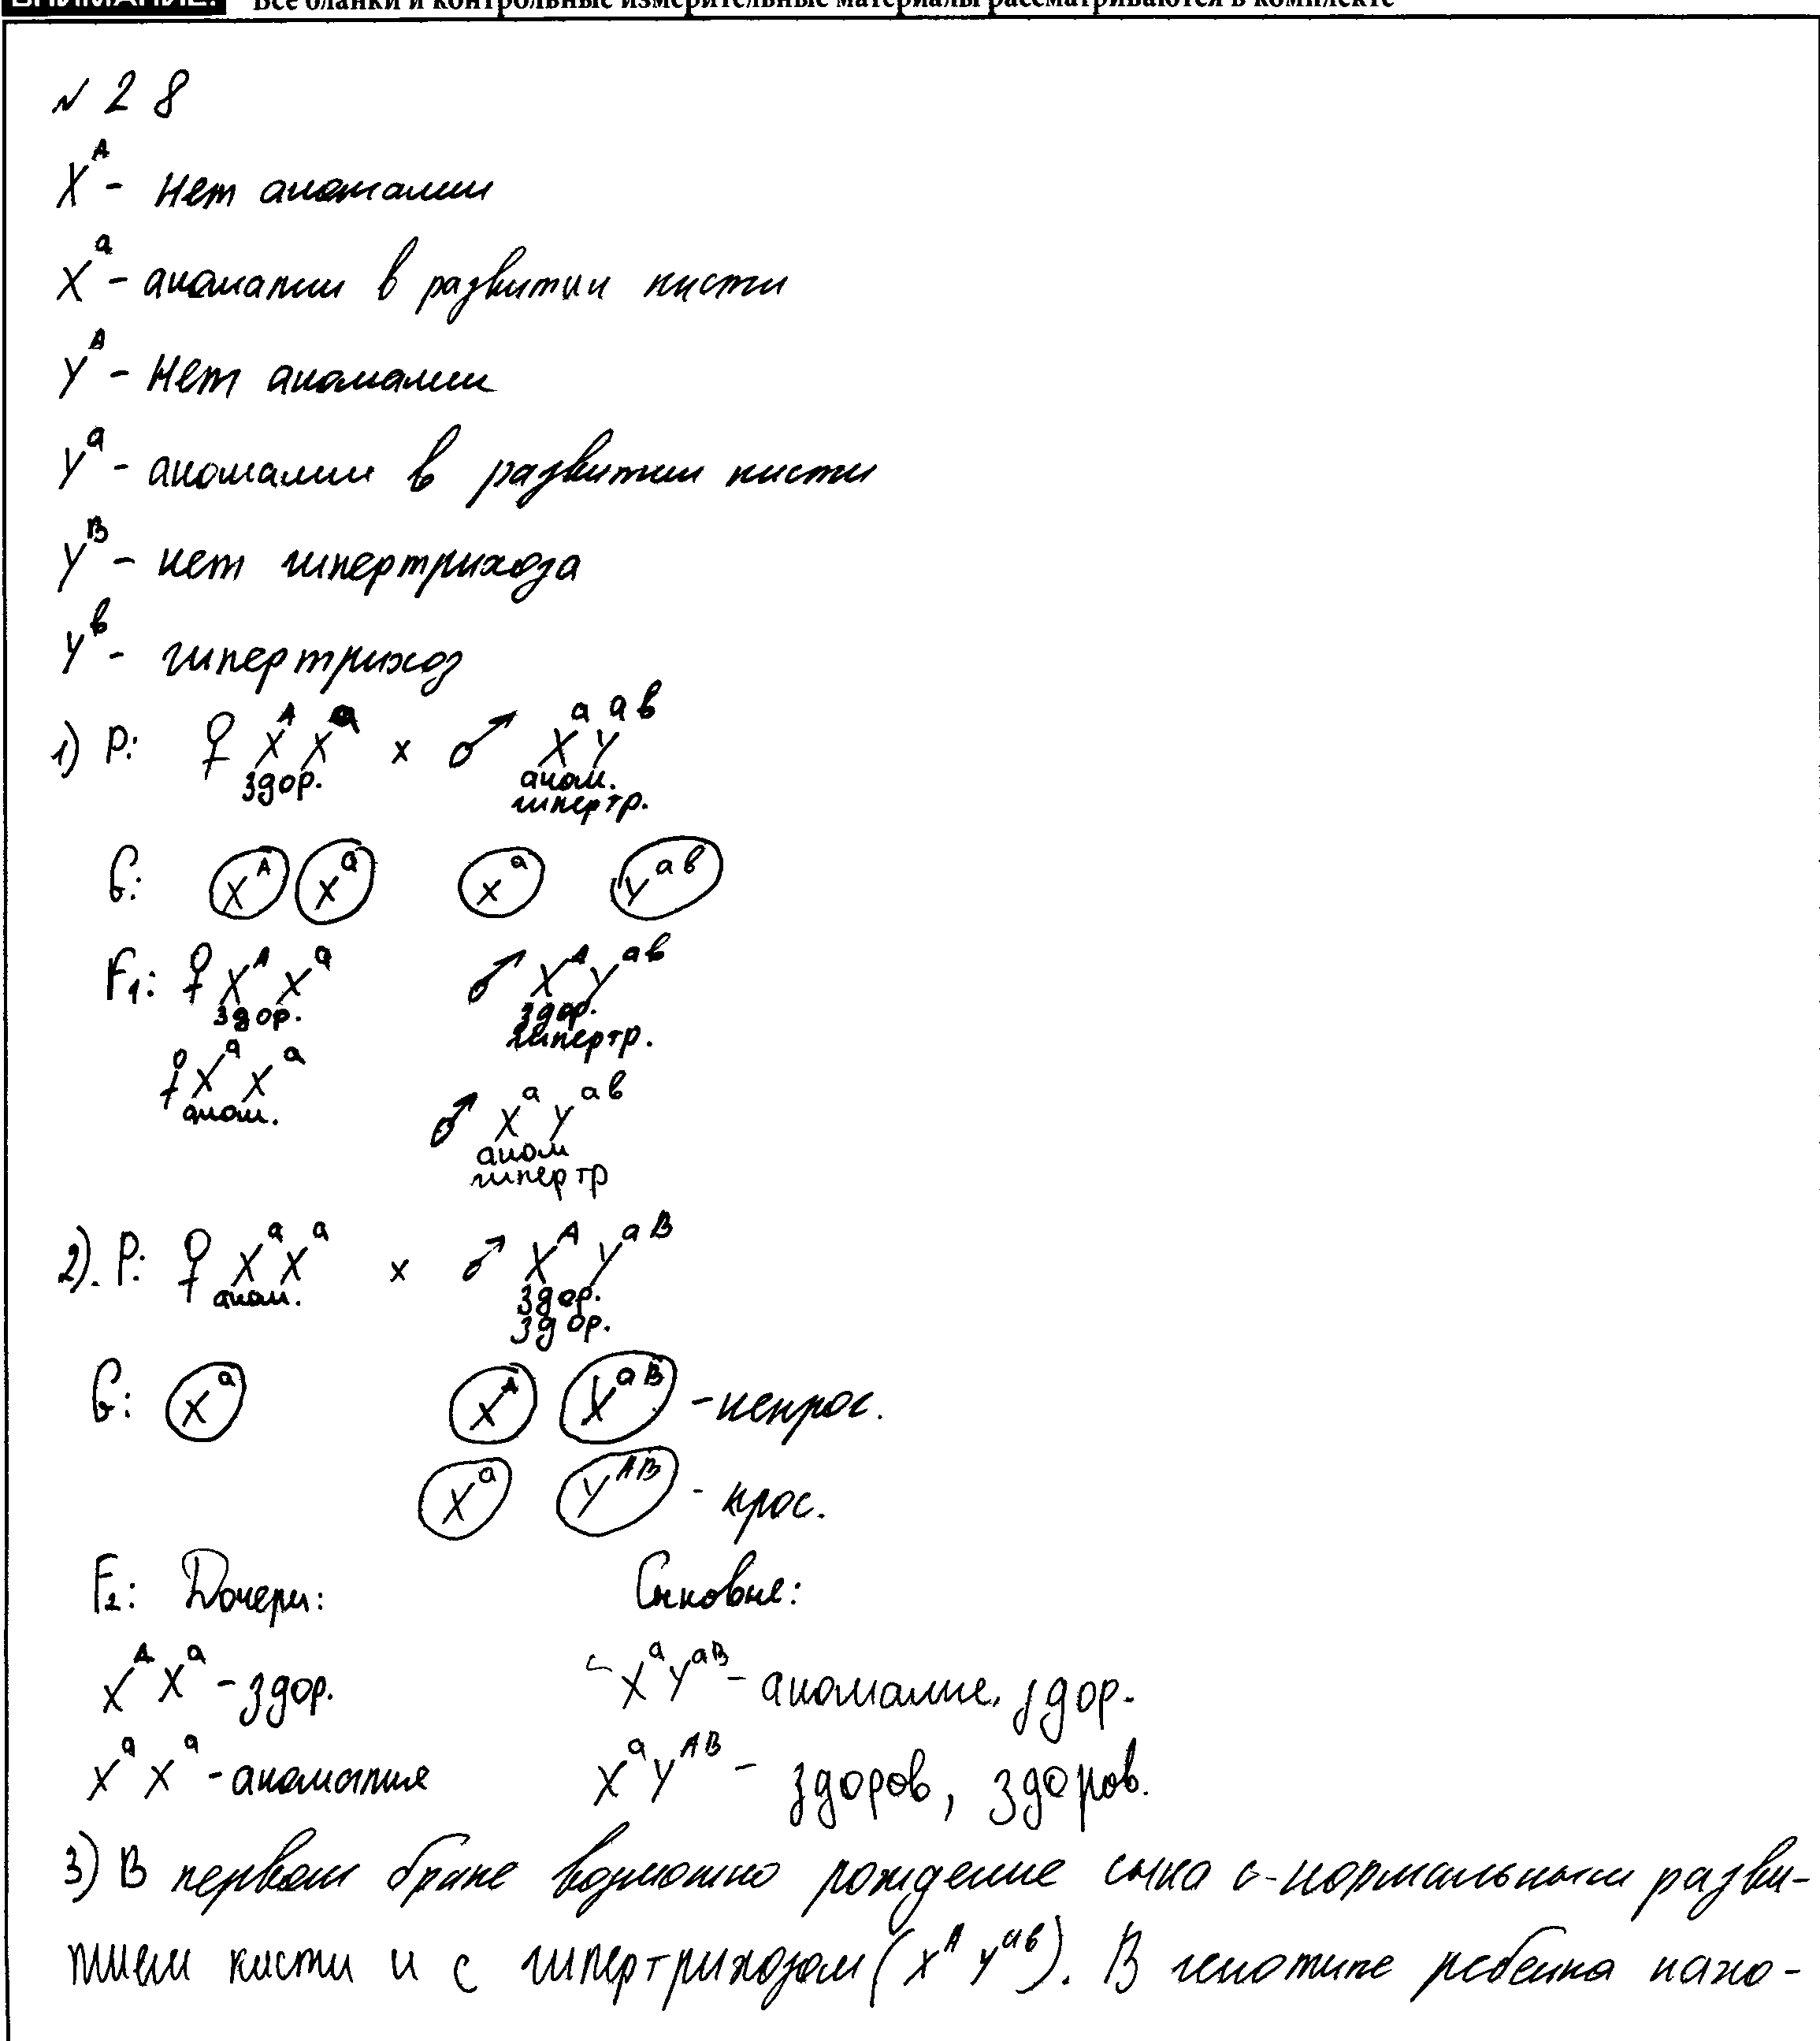 ВНИМАНИЕ! Все бланки и контрольные измерительные материалы рассматриваются в комплекте
№ 28
X^A - нет аномалии
X^a - аномалии в развитии кисти
Y^A - нет аномалии
Y^a - аномалии в развитии кисти
Y^B - нет гипертрихоза
Y^b - гипертрихоз
1) P: ♀ X^A X^a × ♂ X^a Y^ab
здор. аном.
гипертр.
G: X^A X^a X^a Y^ab
F1: ♀ X^A X^a ♂ X^A Y^ab
здор. здор.
гипертр.
♀ X^a X^a ♂ X^a Y^ab
аном. аном
гипертр
2). P: ♀ X^a X^a × ♂ X^A Y^aB
аном. здор.
здор.
G: X^a X^A Y^aB - некрос.
X^a Y^AB - крос.
F2: Дочери: Сыновье:
X^A X^a - здор. X^a Y^aB - аномалие, здор.
X^a X^a - аномалия X^a Y^AB - здоров, здоров.
3) В первом браке возможно рождение сына с нормальным разви-
тием кисти и с гипертрихозом (X^A Y^ab). В генотипе ребенка нахо-